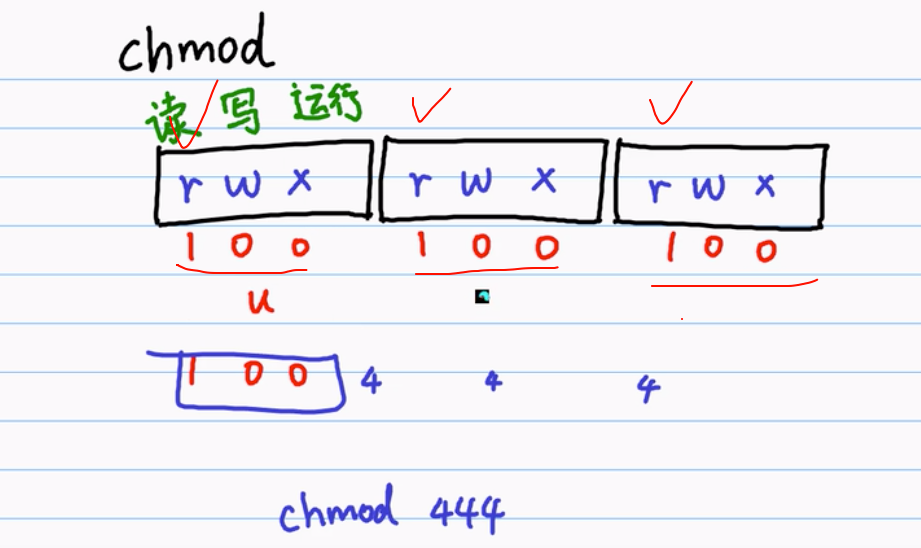 chmod
读 写 运行
r w x r w x r w x
1 0 0 1 0 0 1 0 0
u
1 0 0 4 4 4
chmod 444